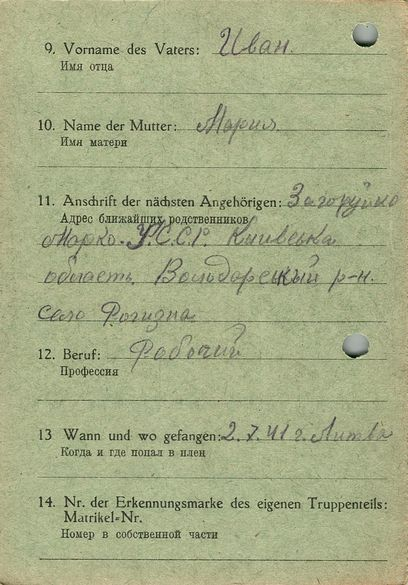 9. Vorname des Vaters: Иван.
Имя отца
10. Name der Mutter: Мария
Имя матери
11. Anschrift der nächsten Angehörigen: Загоруйко
Адрес ближайших родственников
Марко. У.С.С.Р. Київська
область. Володарський р-н.
село Рогизна
12. Beruf: Рабочий
Профессия
13 Wann und wo gefangen: 2.7.41 г. Литва
Когда и где попал в плен
14. Nr. der Erkennungsmarke des eigenen Truppenteils:
Matrikel-Nr.
Номер в собственной части